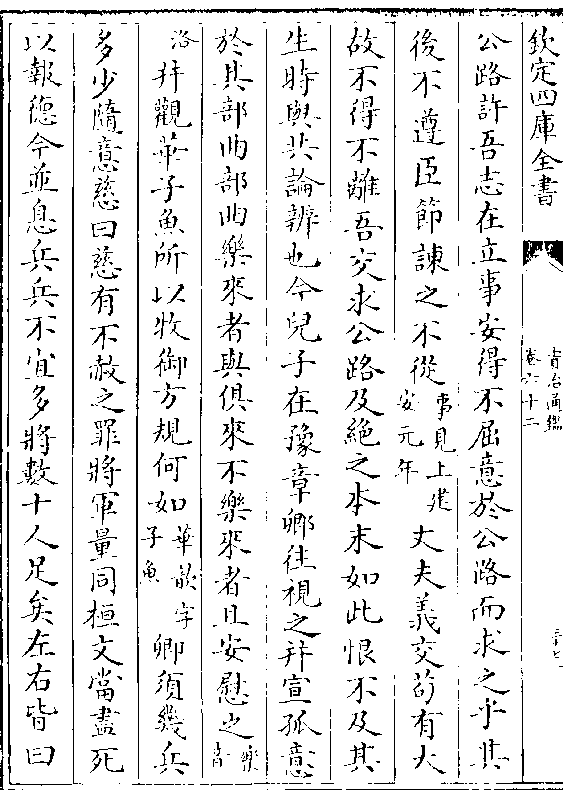 欽定四庫全書
資治通鑑
卷六十二
三十七
公路許吾志在立事安得不屈意於公路而求之乎其
後不遵臣節諫之不從事見上建安元年丈夫義交苟有大
故不得不離吾交求公路及絶之本末如此恨不及其
生時與共論辨也今兒子在豫章卿往視之并宣孤意
於其部曲部曲樂來者與俱來不樂來者且安慰之樂音
洛并觀華子魚所以牧御方規何如華歆字子魚卿須幾兵
多少隨意慈曰慈有不赦之罪將軍量同桓文當盡死
以報徳今並息兵兵不宜多將數十人足矣左右皆曰